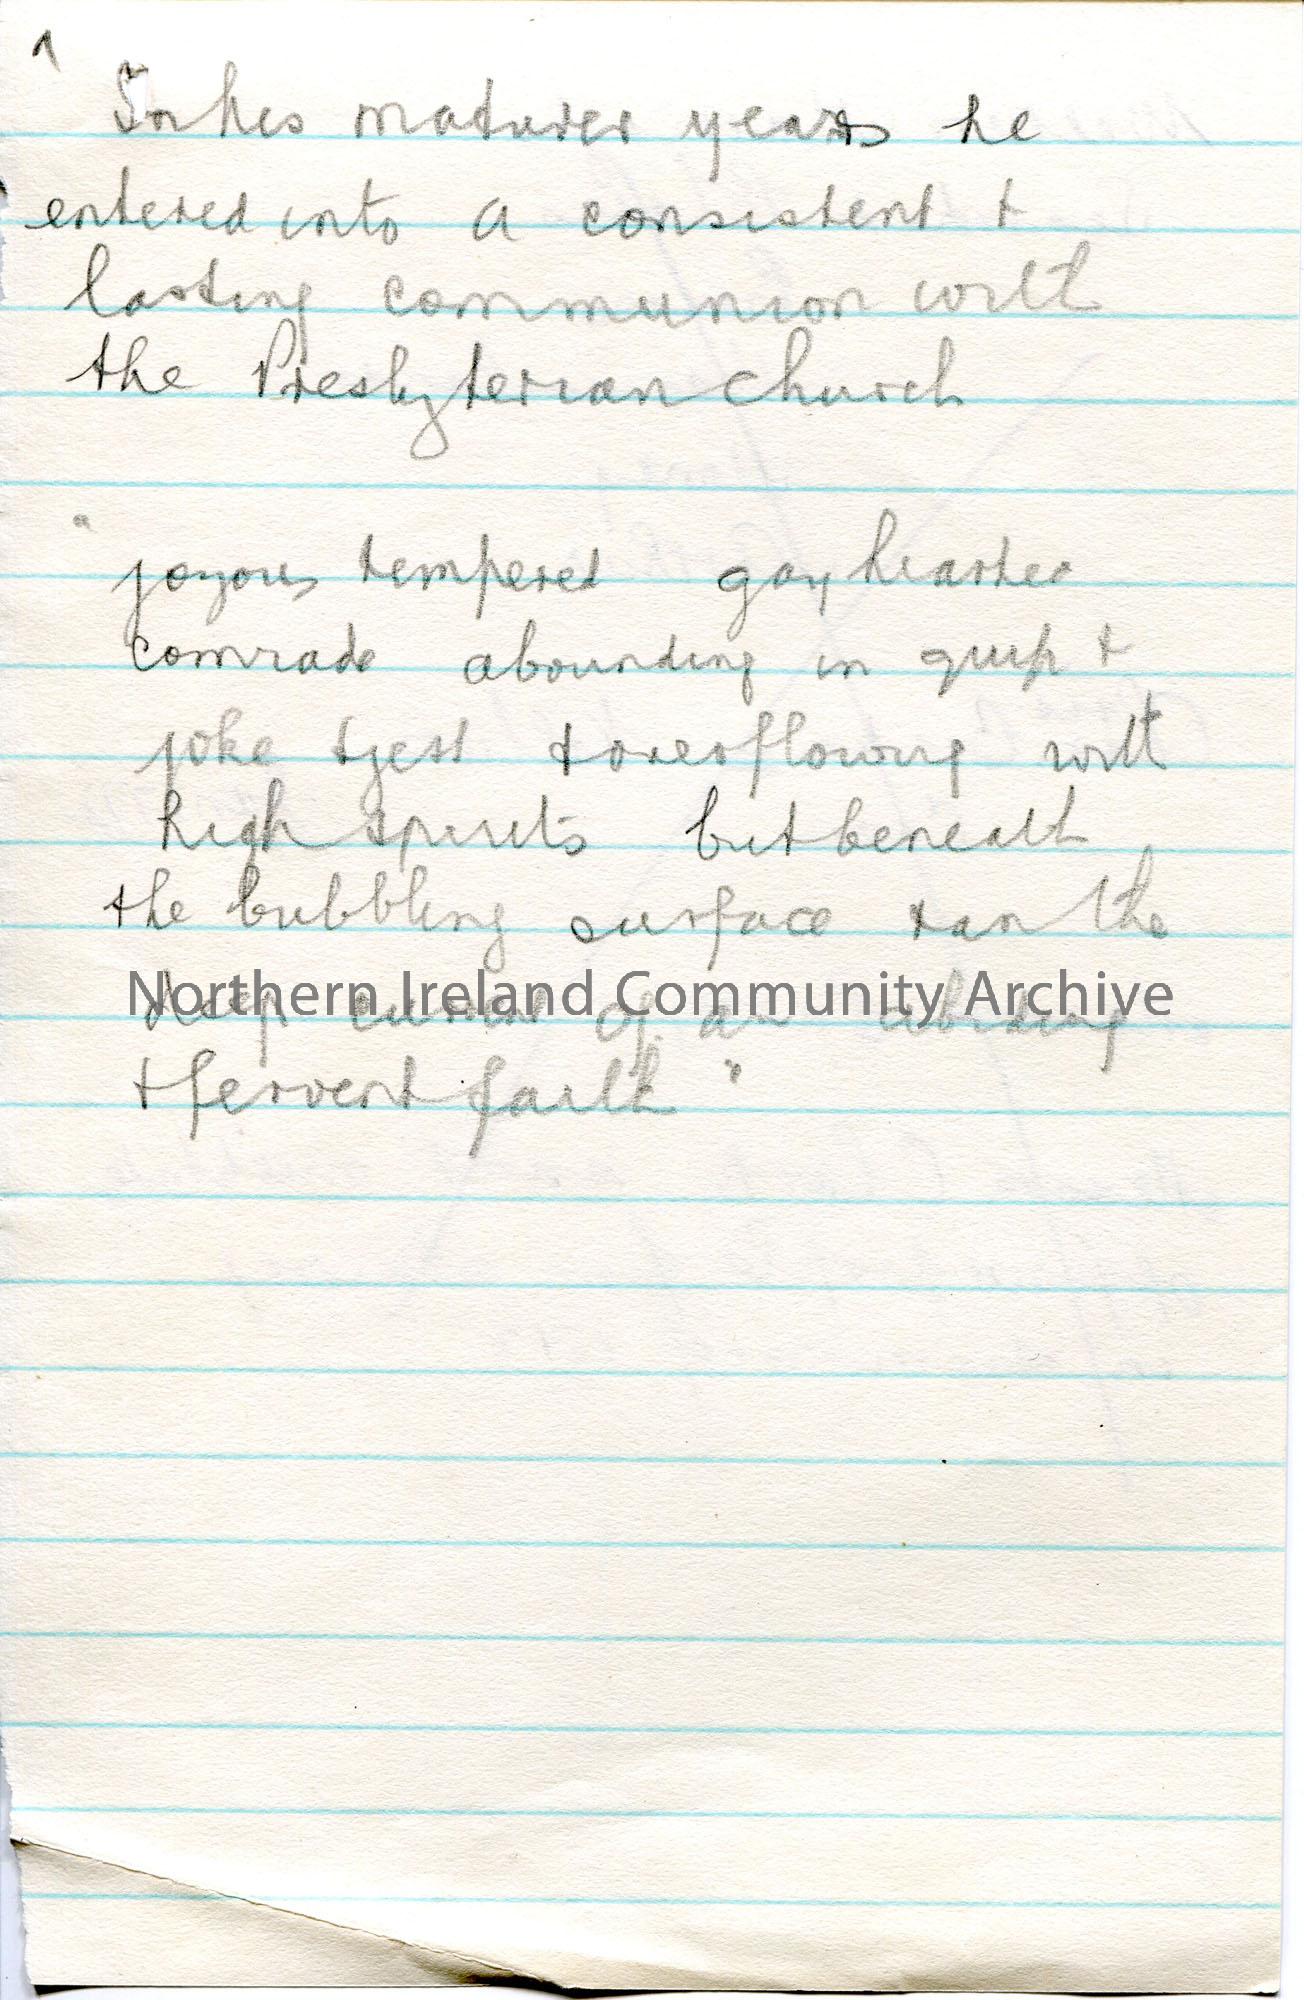 In his maturer years he
entered into a consistent &
lasting communion with
the Presbyterian church
"
joyous tempered gay hearted
comrade abounding in quip &
joke & jest & overflowing with
high spirits but beneath
the bubbling surface ran the
Northern Ireland Community Archive
deep current of an abiding
& fervent faith "